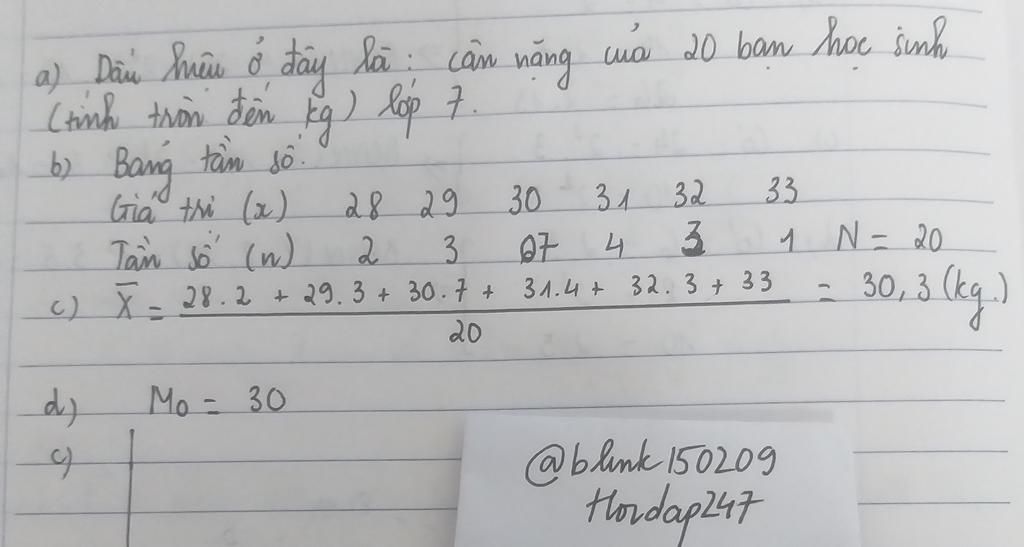 a) Dấu hiệu ở đây là : cân nặng của 20 bạn học sinh
(tính tròn đến kg) lớp 7.
b) Bảng tần số.
Giá trị (x) 28 29 30 31 32 33
Tần số (n) 2 3 07 4 3 1 N = 20
c) X̅ = (28.2 + 29.3 + 30.7 + 31.4 + 32.3 + 33) / 20 = 30,3 (kg.)
d) Mo = 30
c)
@blink150209
Hoidap247